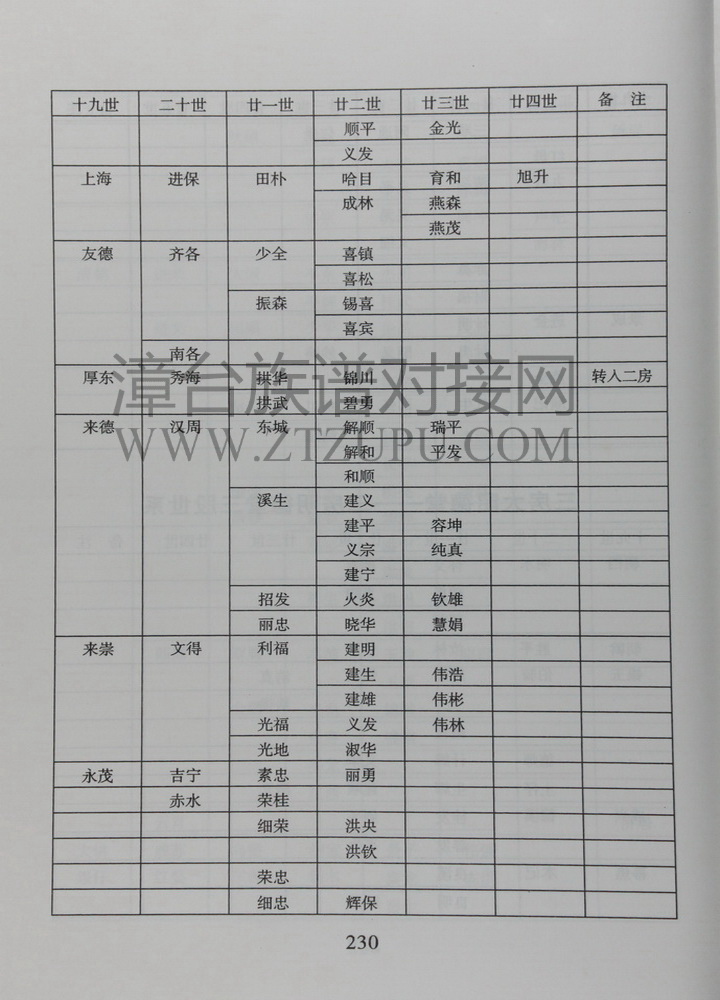 十九世 二十世 廿一世 廿二世 廿三世 廿四世 备 注
顺平 金光
义发
上海 进保 田朴 哈目 育和 旭升
成林 燕森
燕茂
友德 齐各 少全 喜镇
喜松
振森 锡喜
喜宾
南各
厚东 秀海 拱华 锦川 转入二房
拱武 碧勇
来德 汉周 东城 解顺 瑞平
解和 平发
和顺
溪生 建义
建平 容坤
义宗 纯真
建宁
招发 火炎 钦雄
丽忠 晓华 慧娟
来崇 文得 利福 建明
建生 伟浩
建雄 伟彬
光福 义发 伟林
光地 淑华
永茂 吉宁 素忠 丽勇
赤水 荣桂
细荣 洪央
洪钦
荣忠
细忠 辉保
230
漳台族谱对接网
WWW.ZTZUPU.COM